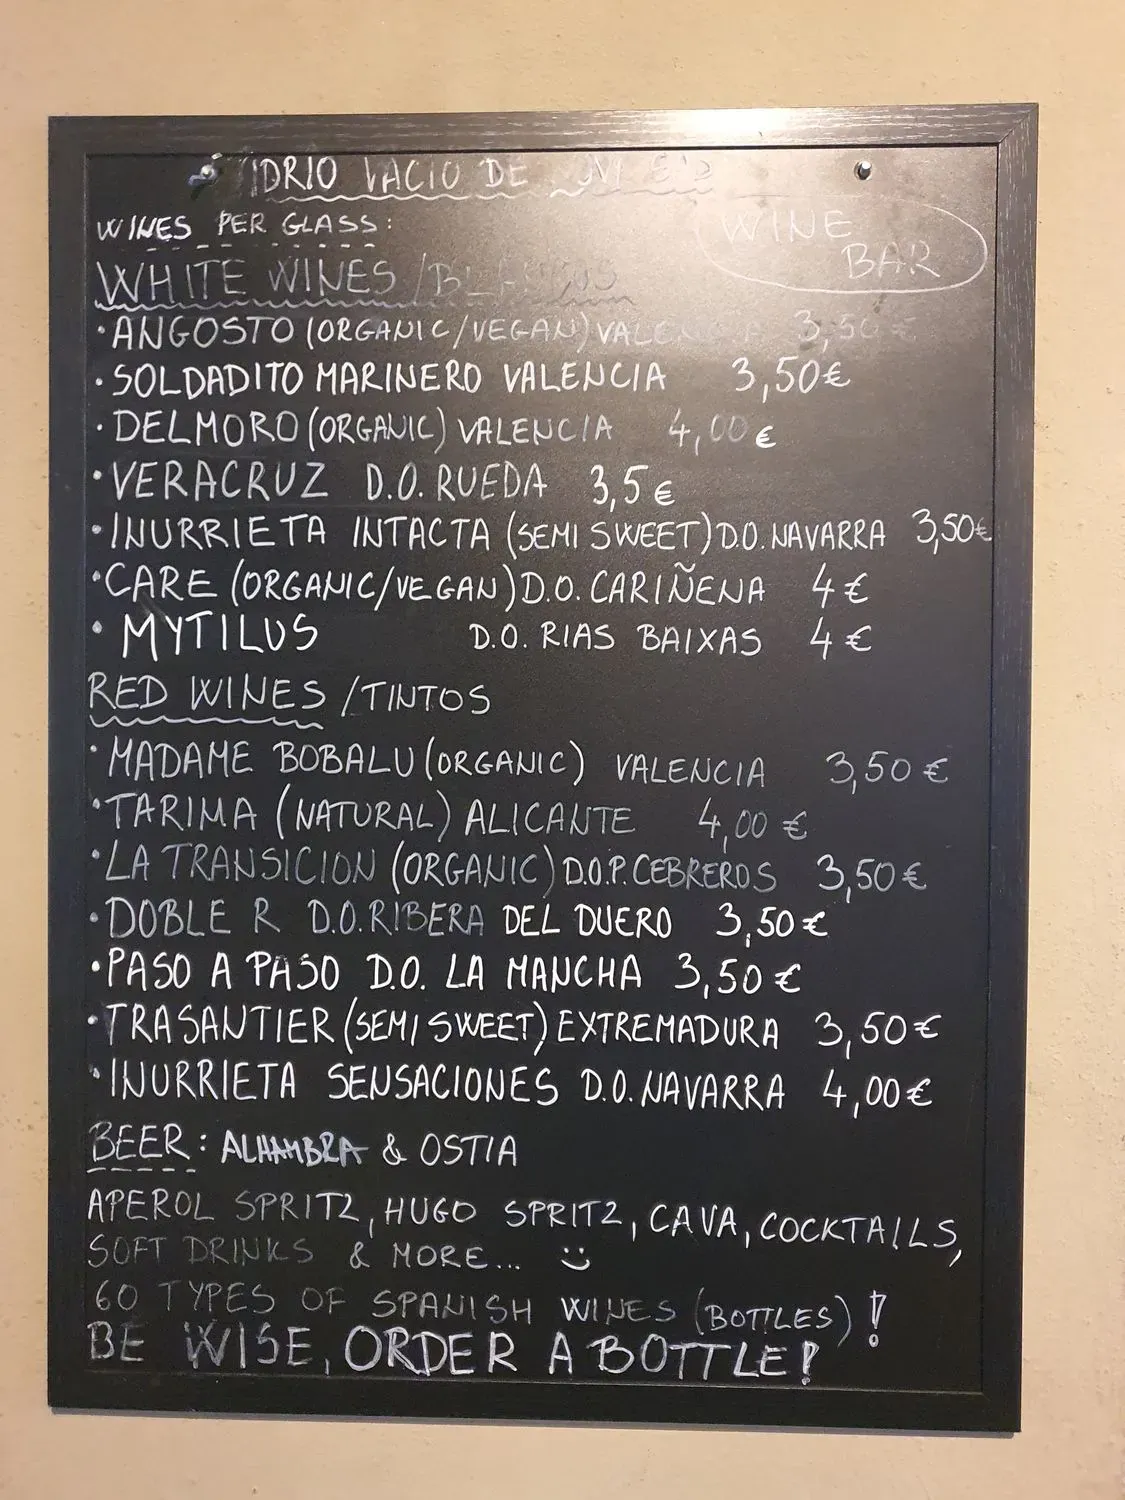 VIDRIO VACIO DE
WINES PER GLASS:
WINE
BAR
WHITE WINES /BLANCOS
·ANGOSTO (ORGANIC/VEGAN) VALENCIA 3,50 €
·SOLDADITO MARINERO VALENCIA 3,50€
·DELMORO (ORGANIC) VALENCIA 4,00 €
·VERACRUZ D.O. RUEDA 3,5 €
·INURRIETA INTACTA (SEMI SWEET) D.O. NAVARRA 3,50€
·CARE (ORGANIC/VEGAN) D.O. CARIÑENA 4 €
·MYTILUS D.O. RIAS BAIXAS 4 €
RED WINES /TINTOS
·MADAME BOBALU (ORGANIC) VALENCIA 3,50 €
·TARIMA (NATURAL) ALICANTE 4,00 €
·LA TRANSICION (ORGANIC) D.O.P. CEBREROS 3,50 €
·DOBLE R D.O. RIBERA DEL DUERO 3,50 €
·PASO A PASO D.O. LA MANCHA 3,50 €
·TRASANTIER (SEMI SWEET) EXTREMADURA 3,50 €
·INURRIETA SENSACIONES D.O. NAVARRA 4,00 €
BEER: ALHAMBRA & OSTIA
APEROL SPRITZ, HUGO SPRITZ, CAVA, COCKTAILS,
SOFT DRINKS & MORE... :)
60 TYPES OF SPANISH WINES (BOTTLES) !
BE WISE, ORDER A BOTTLE!